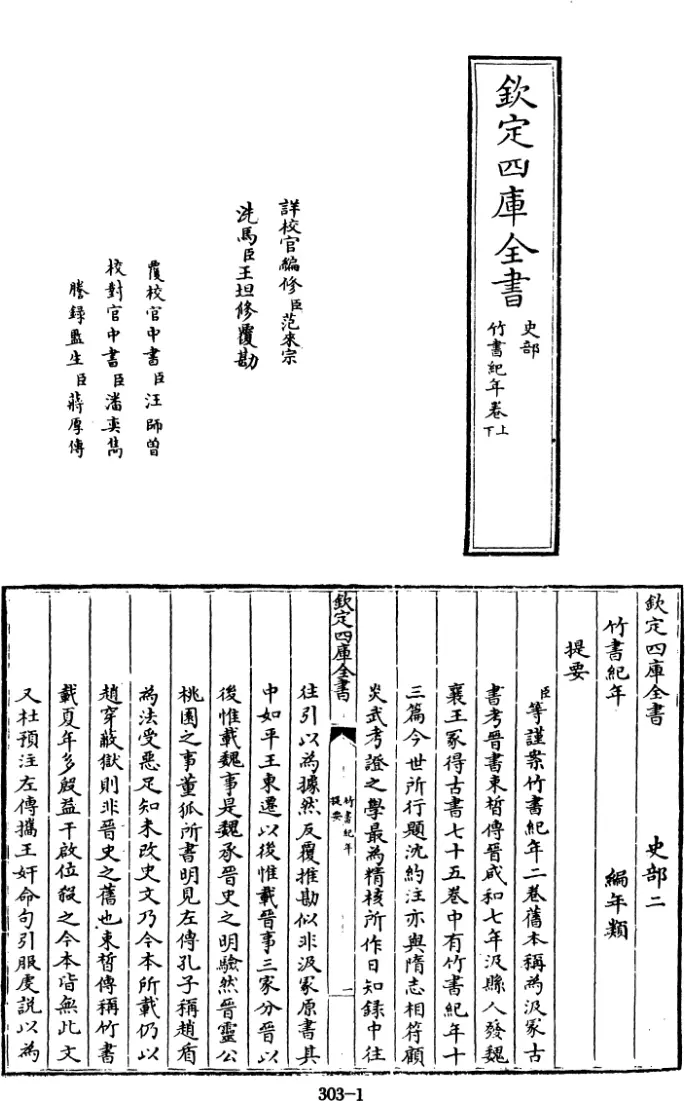 欽定四庫全書
史部
竹書紀年卷上下
詳校官編修臣范來宗
洗馬臣王坦修覆勘
覆校官中書臣汪師曾
校對官中書臣潘奕雋
謄錄監生臣蔣厚傳
欽定四庫全書 史部二
竹書紀年 編年類
提要
臣等謹案竹書紀年二卷舊本稱為汲冢古
書考晉書束晳傳晉咸和七年汲縣人發魏
襄王冢得古書七十五卷中有竹書紀年十
三篇今世所行題沈約注亦與隋志相符顧
炎武考證之學最為精核所作日知錄中往
欽定四庫全書
竹書紀年
提要
一
往引以為據然反覆推勘似非汲冢原書其
中如平王東遷以後惟載晉事三家分晉以
後惟載魏事是魏承晉史之明驗然晉靈公
桃園之事董狐所書明見左傳孔子稱趙盾
為法受惡足知未改史文乃今本所載仍以
趙穿蔽獄則非晉史之舊也束晳傳稱竹書
載夏年多殷益干啟位殺之今本皆無此文
又杜預注左傳攜王奸命句引服虔說以為
303-1